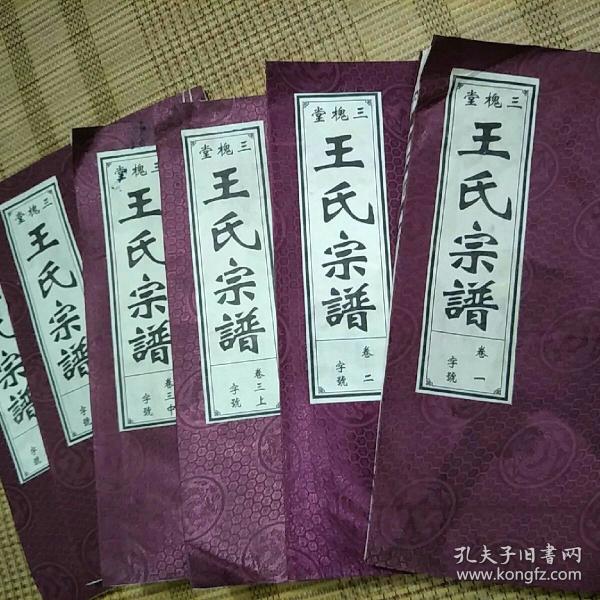 三槐堂
王氏宗譜
卷一
字號
三槐堂
王氏宗譜
卷二
字號
三槐堂
王氏宗譜
卷三上
字號
三槐堂
王氏宗譜
卷三中
字號
三槐堂
王氏宗譜
字號
氏宗譜
字號
孔夫子旧书网
www.kongfz.com